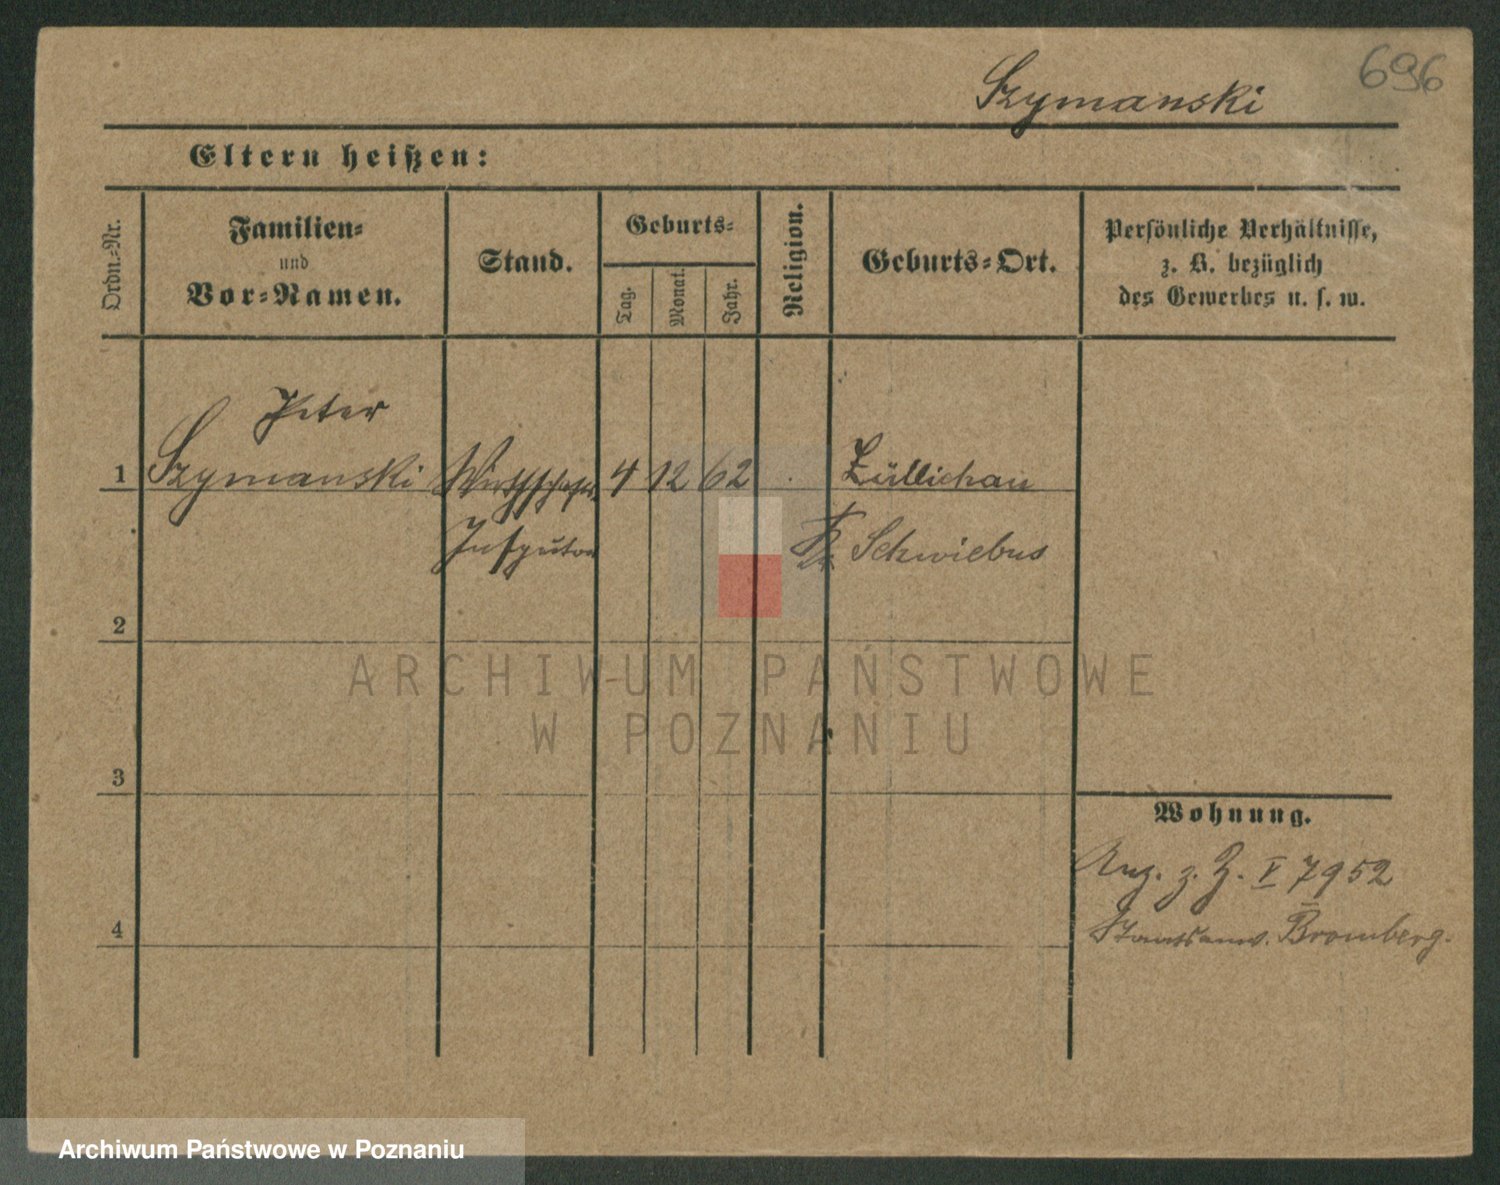 696
Szymanski
Eltern heißen:
Ordn.-Nr.
Familien-
und
Vor-Namen.
Stand.
Geburts-
Tag.
Monat.
Jahr.
Religion.
Geburts-Ort.
Persönliche Verhältnisse,
z. B. bezüglich
des Gewerbes u. s. w.
Peter
1 Szymanski Wirthschafts 4 12 62 Züllichau
Inspector Kr. Schwiebus
2
ARCHIWUM PAŃSTWOWE
W POZNANIU
3
Wohnung.
Ang. z. Z. V 7952
4
Staatsanw. Bromberg.
Archiwum Państwowe w Poznaniu